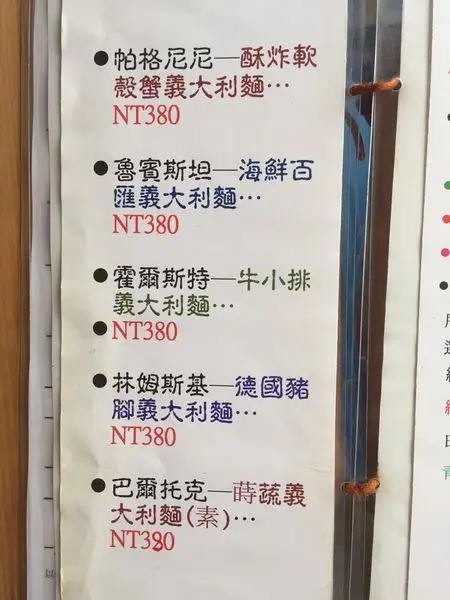 ●帕格尼尼—酥炸軟
殼蟹義大利麵…
NT380
●魯賓斯坦—海鮮百
匯義大利麵…
NT380
●霍爾斯特—牛小排
義大利麵…
●NT380
●林姆斯基—德國豬
腳義大利麵…
NT380
●巴爾托克—蒔蔬義
大利麵(素)…
NT320